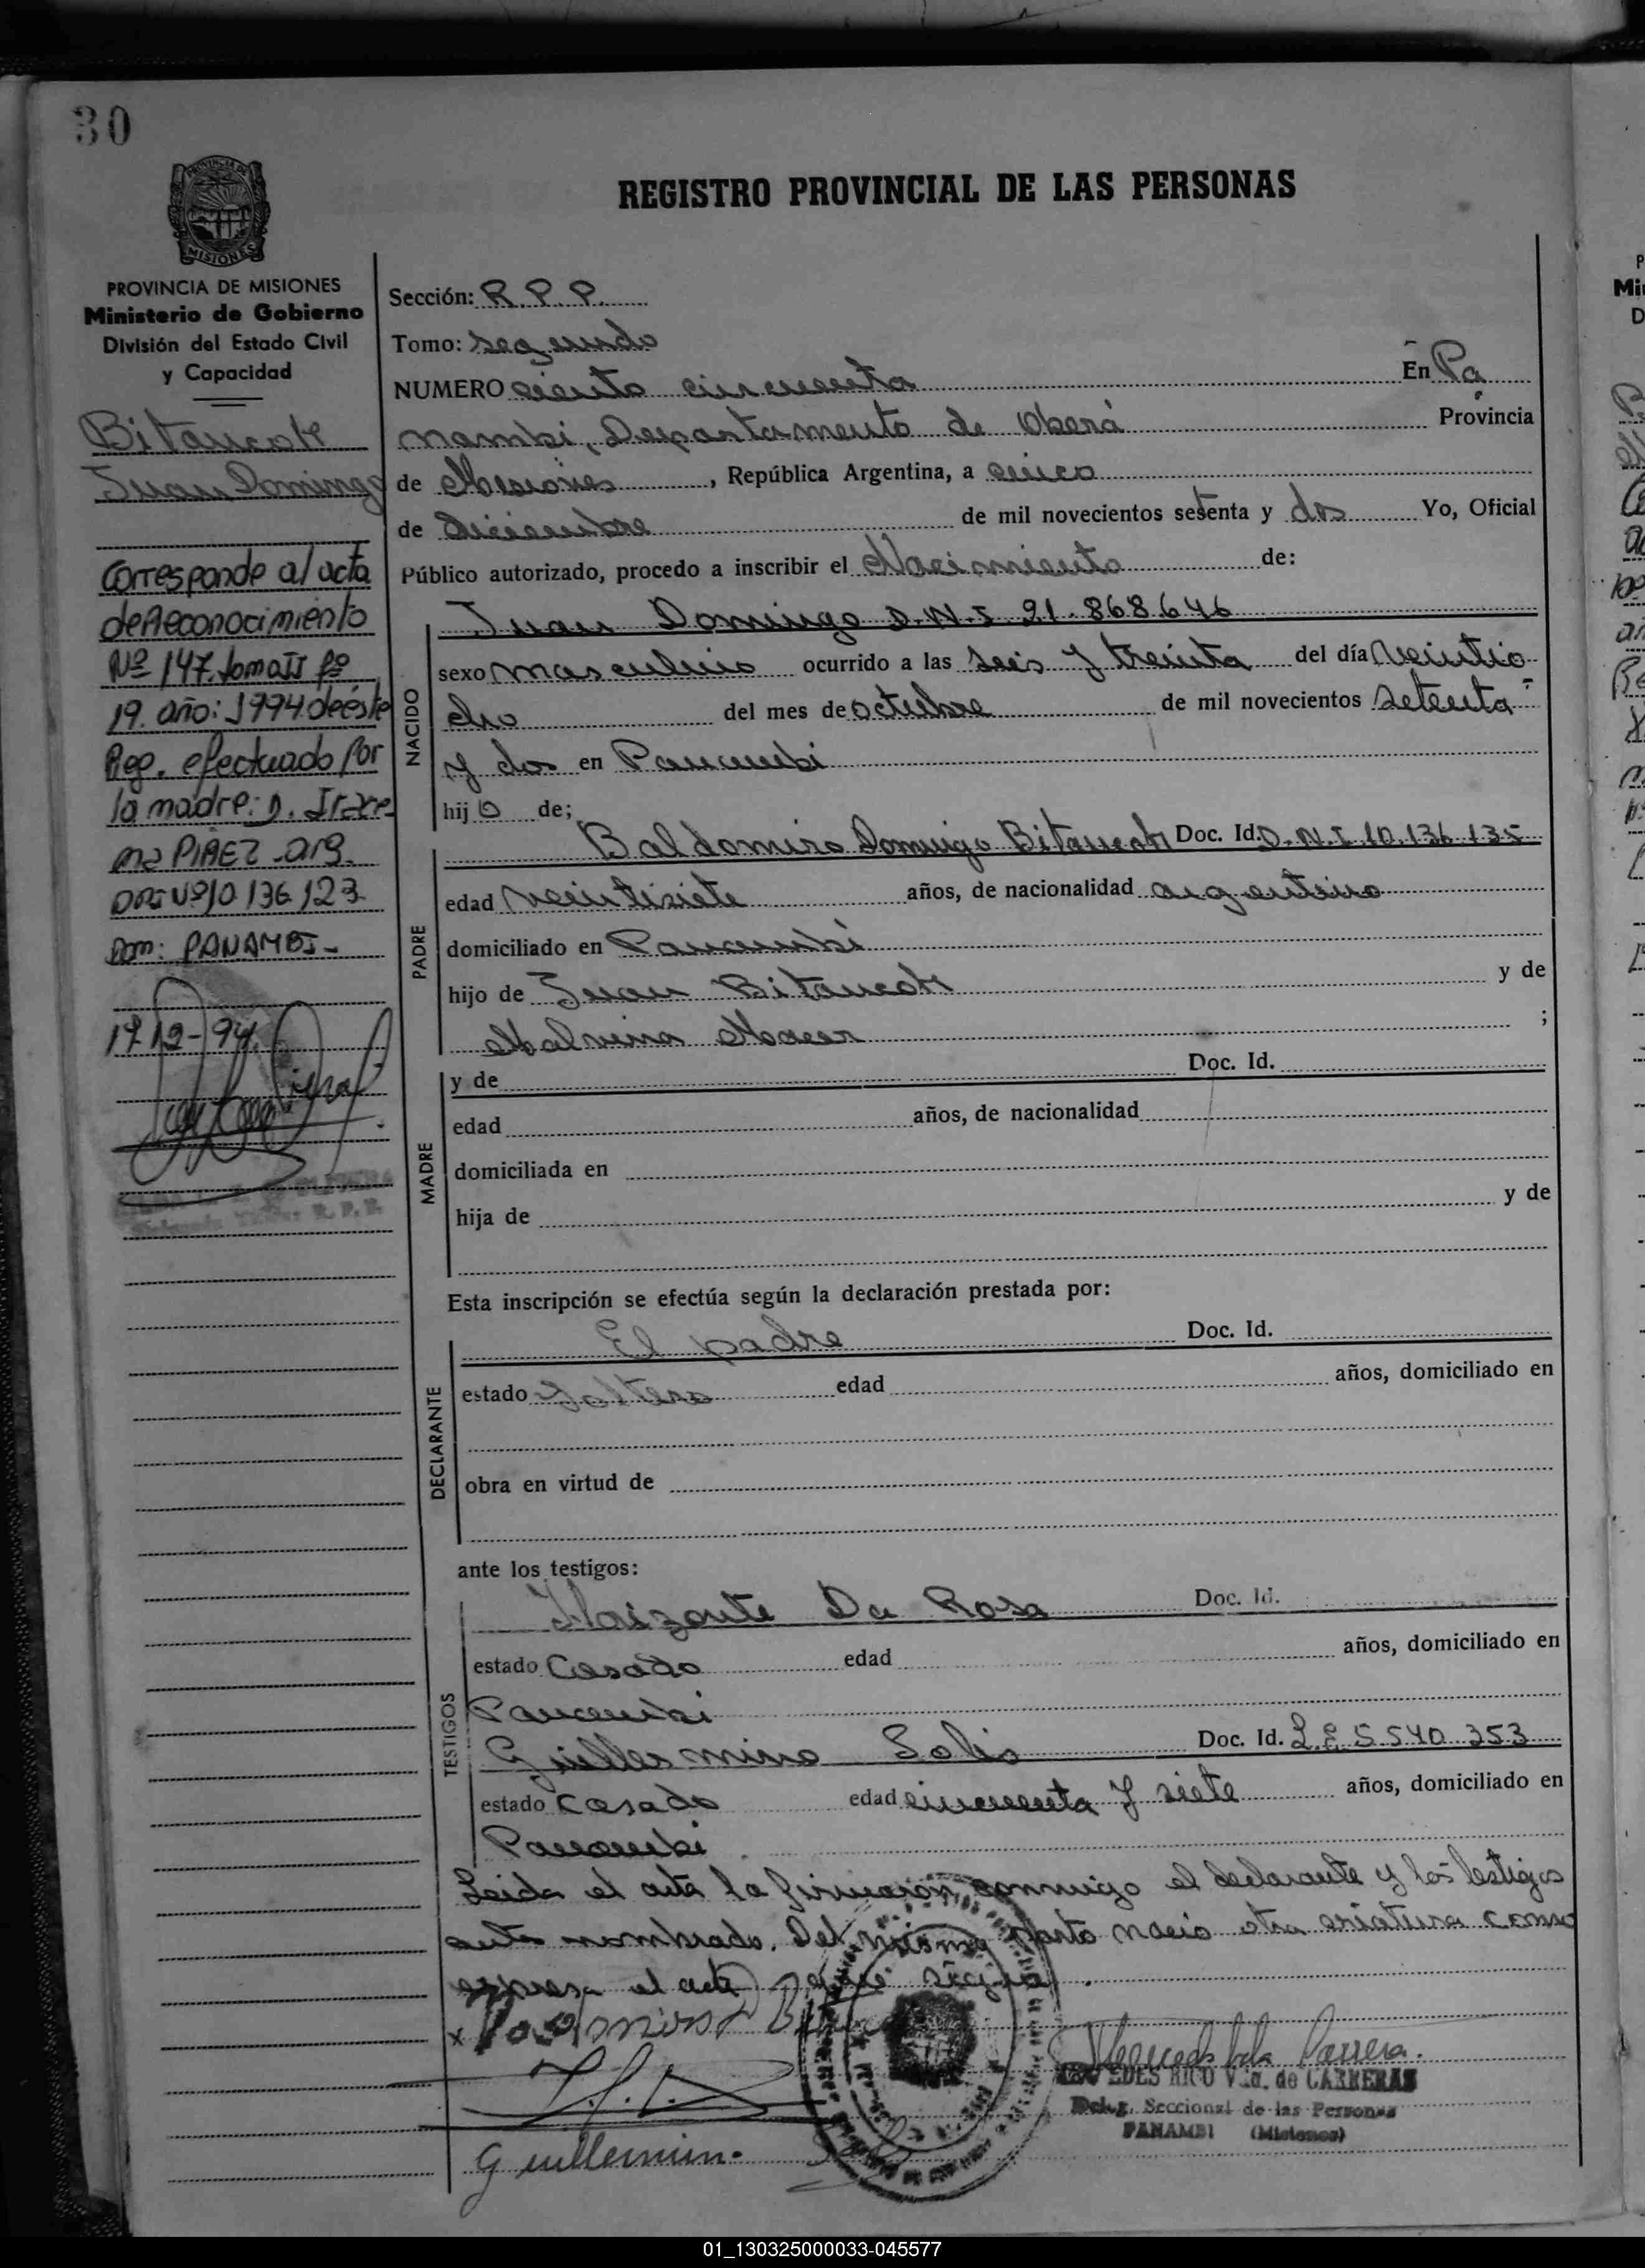 30
REGISTRO PROVINCIAL DE LAS PERSONAS
PROVINCIA DE
MISIONES
PROVINCIA DE MISIONES
Ministerio de Gobierno
División del Estado Civil
y Capacidad
Juan Domingo
Corresponde al acta
de Reconocimiento
Nº 147. tomo II fº
19. año: 1994 de éste
Reg. efectuado por
la madre: D.
PIREZ - arg.
DNI Nº 10 136 123
Dom: PANAMBI -
Sección: R. P. P.
Tomo: segundo
NUMERO ciento cincuenta En Pa
nambi, Departamento de Oberá Provincia
de Misiones, República Argentina, a cinco
de diciembre de mil novecientos setenta y dos Yo, Oficial
Público autorizado, procedo a inscribir el Nacimiento de:
NACIDO
Juan Domingo D.N.I 21.868.646
sexo masculino ocurrido a las seis y treinta del día veintio-
cho del mes de octubre de mil novecientos setenta
y dos en Panambi
hij o de;
PADRE
Baldomiro Domingo Doc. Id. D.N.I. 10.136.135
edad veintisiete años, de nacionalidad argentino
domiciliado en Panambi
hijo de Juan y de
Malvina ;
MADRE
y de Doc. Id.
edad años, de nacionalidad
domiciliada en
hija de y de
Esta inscripción se efectúa según la declaración prestada por:
DECLARANTE
El padre Doc. Id.
estado Soltero edad años, domiciliado en
obra en virtud de
ante los testigos:
TESTIGOS
Da Rosa Doc. Id.
estado Casado edad años, domiciliado en
Panambi
Guillermino Solis Doc. Id. L.E 5.540.353
estado casado edad cincuenta y siete años, domiciliado en
Panambi
Leida el acta la firmaron conmigo el declarante y los testigos
ante nombrado. Del mismo parto nacio otra criatura como
expresa el acta que sigue.
Guillermin
EDES RICO Vda. de CARRERAS
Deleg. Seccional de las Personas
PANAMBI (Misiones)
01_130325000033-045577